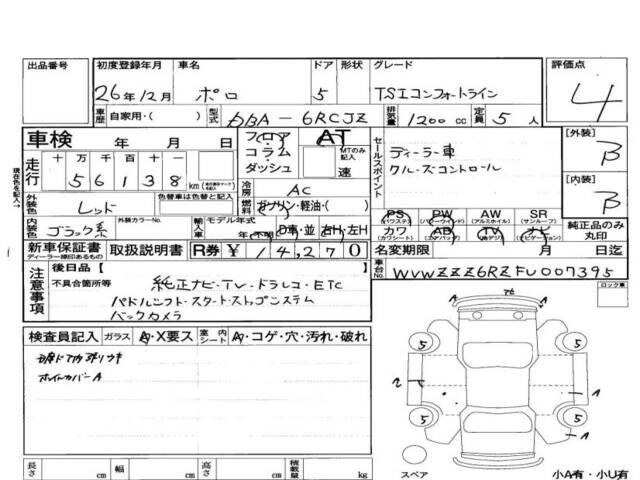 出品番号 初度登録年月 車名 ドア 形状 グレード 評価点
26年12月 ポロ 5 TSIコンフォートライン 4
車歴 自家用・( ) 型式 DBA-6RCJZ 排気量 1200cc 定員 5人
車検 年 月 日 フロア AT セールスポイント [外装]
走行 十 万 千 百 十 一 コラム・ダッシュ MTのみ記入 速 ディーラー車 B
5 6 1 3 8 km クルーズコントロール
冷房 AC [内装]
外装色 レッド 色替車は色替と記入 燃料 ガソリン・軽油・( ) B
現在色を記入→
内装色 ブラック系 外装カラーNo. 輸入車 モデル年式 年(不明) D車・並 右H・左H
PS PW AW SR
(パワステ) (パワーウインド) (アルミホイル) (サンルーフ)
カワ AB TV ナビ 純正品のみ丸印
(カワシート) (エアバッグ) (純正デジ) (ナビゲーション)
新車保証書 取扱説明書 R券 ¥ 14,270 名変期限 月 日迄
ディーラー捺印あるもの
車台No. WVWZZZ6RZFU007395
注意事項 後日品( )
不具合箇所等 純正ナビ・TV・ドラレコ・ETC
パドルシフト・スタートストップシステム
バックカメラ
ロック車
検査員記入 ガラス A・X要ス 室内シート A・コゲ・穴・汚れ・破れ
ホイルカバーA
A
5 5
A
5 5
A
A
スペア 小A有・小U有
長さ cm 幅 cm 高さ cm 積載量 kg